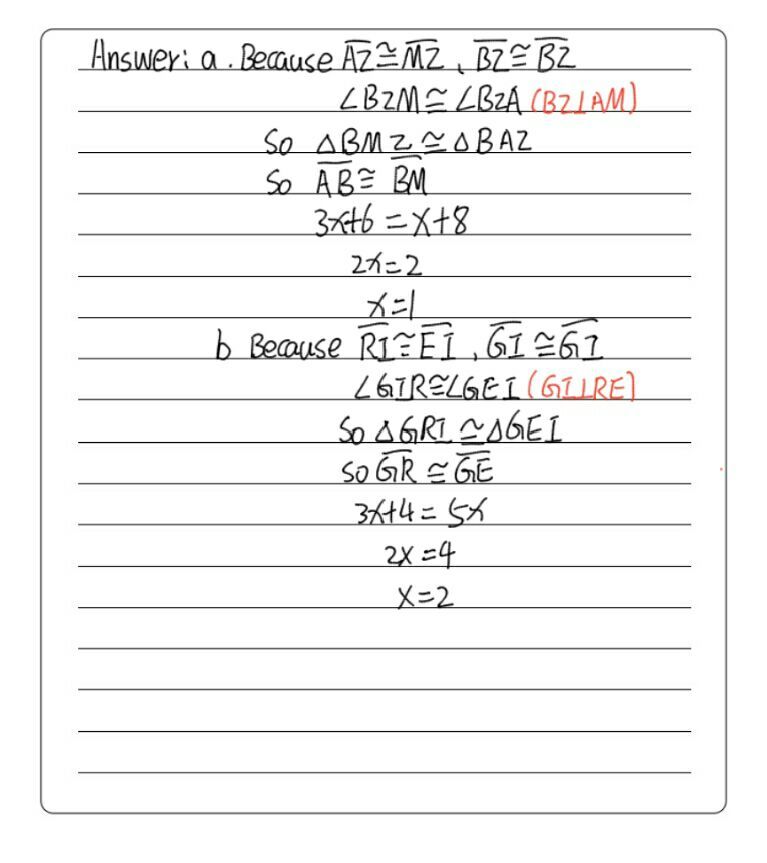 Answer: a. Because A̅Z̅≅M̅Z̅, B̅Z̅≅B̅Z̅
∠BZM≅∠BZA (BZ⊥AM)
So △BMZ≅△BAZ
So A̅B̅≅B̅M̅
3x+6=x+8
2x=2
x=1
b Because R̅I̅≅E̅I̅, G̅I̅≅G̅I̅
∠GIR≅∠GEI (GI⊥RE)
So △GRI≅△GEI
so G̅R̅≅G̅E̅
3x+4=5x
2x=4
x=2